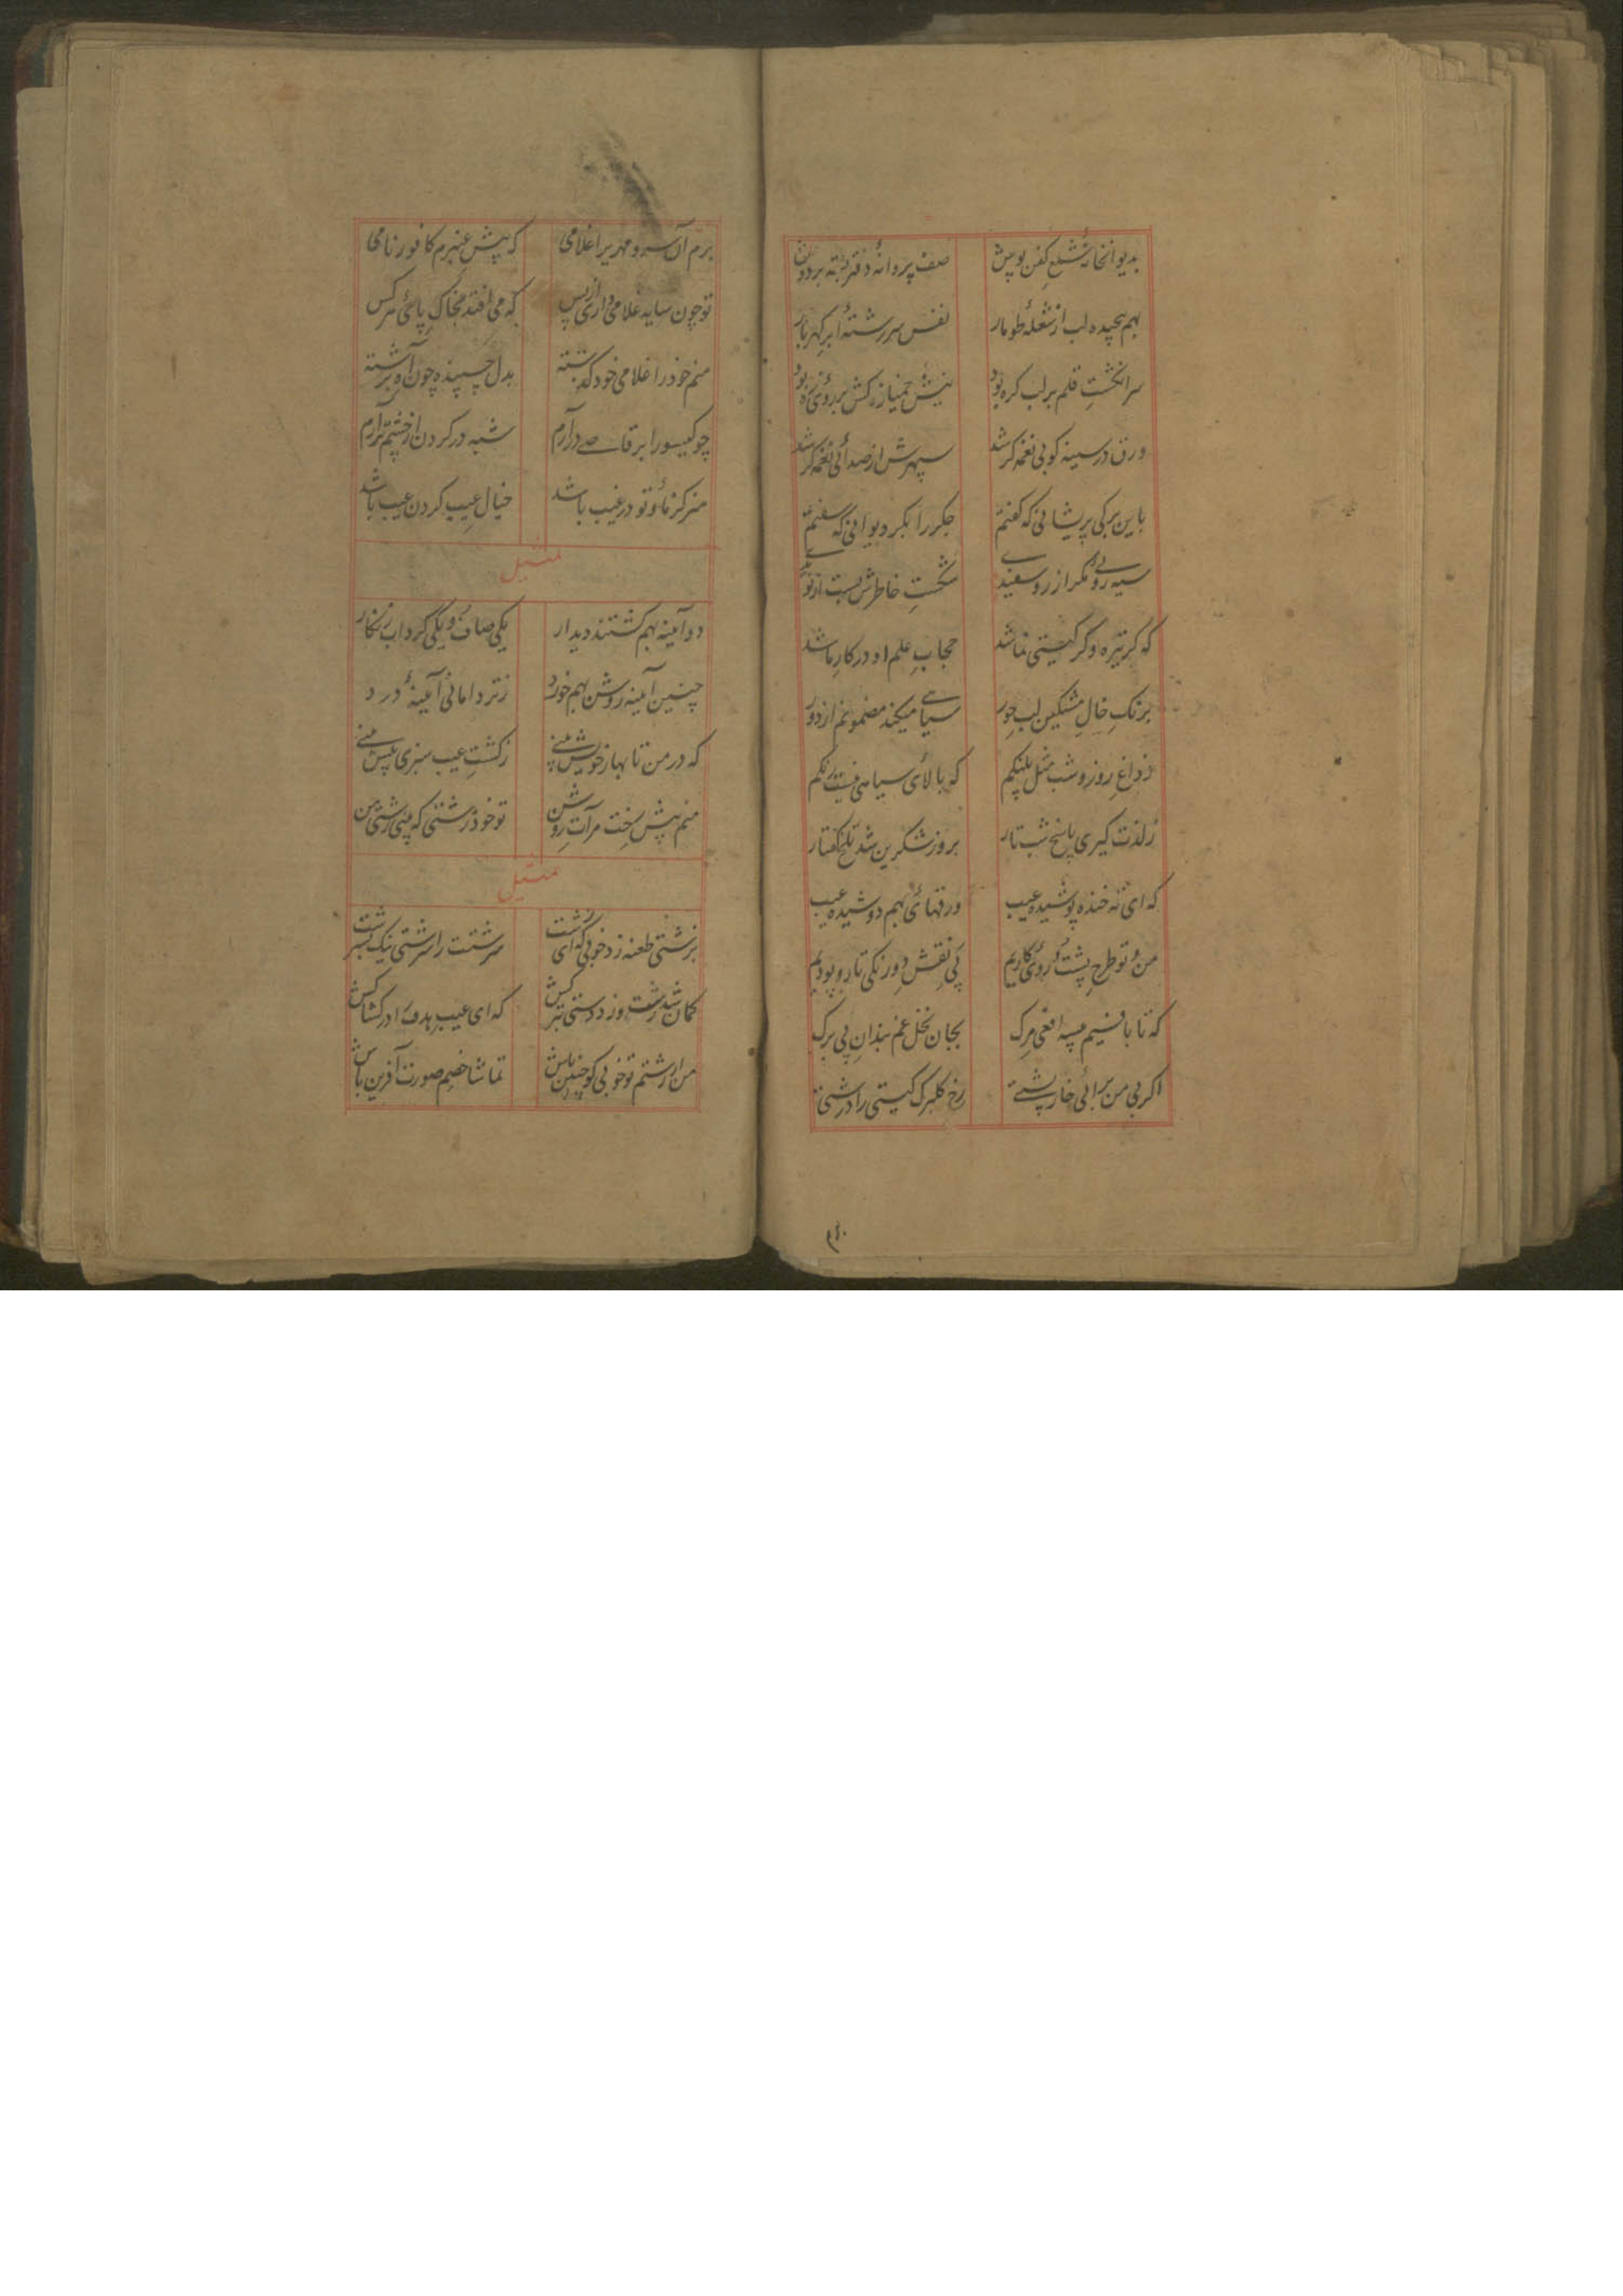 بدیوانخانهٔ شمع کفن پوش صف پروانهٔ دفتر بسته بر دوش
بهم پیچیده لب از شعلهٔ طومار نفس سررشتهٔ ابر گهربار
سر انگشتِ قلم بر لب کره بود
ورق در سینه کوبی نغمه کر شد سپهرش از صدائی نغمه کر شد
باین برکی پریشانی که گفتم جکر را بکر دیوانی که سفتم
سیه روئی مکر از رو سفیدی شکستِ خاطرش بست از نو
که کر تیره وکر کیستی نماشد حجابِ علم او در کار ما شد
برنکِ خالِ مشکین لبِ حور سیاهی میکند مضمونم از دور
ز داغِ روز و شب مثل پلنکم که بالای سیاهی نیست رنکم
ز لذت کیری پاسخ شب تار بروز شکرین شد تلخ گفتار
که ای ته خنده پوشیده عیب ورقهائی بهم دوشیده عیب
من و تو طرحِ پشت و روئی کاریم پیِ نقشِ دورنکی تار و پودیم
که تا با نیم چه افعی مرک بجان نخل غم بندانِ بی برک
اکر بی من برائی خارپشتی رخ کلبرک کیتی را درشتی
برم آن سرو مهر پر اغلامی که پیش عنبرم کافور نامی
تو چون سایه غلامی داری از پس که می افتد بخاکِ پائی هر کس
منم خود را غلامی خود که بسته بدل چسپیده چون آهِ برشته
چو کیسو را برقاصی درآرم شبه در کردن از خشم برآرم
هنر کز ما و تو در غیب باشد خیال عیب کردن عیب باشد
تمثیل
دو آئینه بهم کشتند دیدار یکی صاف و یکی کرداب زنکار
چنین آئینه روشن بهم خورد ز تر دامانی آئینهٔ درد
که در من تا بهار خویش بینی ز کشتِ عیب سبزی پیش بینی
منم پیش رخت مرآتِ روشن تو خود زشتی که بینی زشتی من
تمثیل
بزشتی طعنه زد خوبی که ای زشت سرشتت را سرشتی نیک سرشت
کمان شد زشت و زد دستی بترکش که ای عیب هدف را در کشاکش
من ار زشتم تو خوبی کو چنین باش تماشا خصم صورت آفرین باش